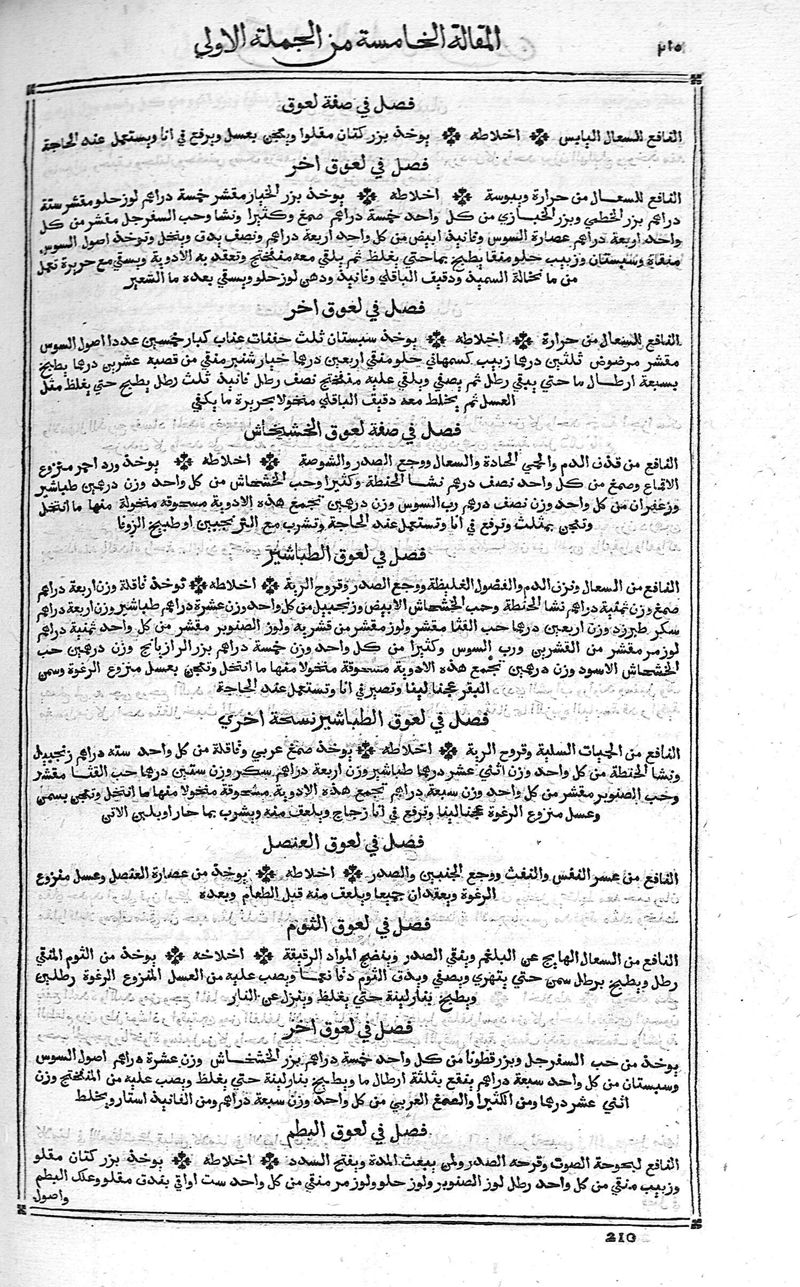 المقالة الخامسة من الجملة الاولي
٢١٠
فصل في صفة لعوق
النافع للسعال اليابس ❈ اخلاطه ❈ يوخذ بزر كتان مقلوا ويعجن بعسل ويرفع في انا ويستعمل عند الحاجة
فصل في لعوق اخر
النافع للسعال من حرارة ويبوسة ❈ اخلاطه ❈ يوخذ بزر الخيار مقشر خمسة دراهم لوز حلو مقشر ستة
دراهم بزر الخطمي وبزر الخبازي من كل واحد خمسة دراهم صمغ وكثيرا ونشا وحب السفرجل مقشر من كل
واحد اربعة دراهم عصارة السوس وفانيذ ابيض من كل واحد اربعة دراهم ونصف يدق وينخل وتوخذ اصول السوس
منقاة وسبستان وزبيب حلو منقا يطبخ بما حتي يغلظ ثم يلقي معه منفختج وتعقد به الادوية ويسقي مع حريرة تعمل
من ما نخالة السميذ ودقيق الباقلي وفانيذ ودهن لوز حلو ويسقي بعده ما الشعير
فصل في لعوق اخر
النافع للسعال من حرارة ❈ اخلاطه ❈ يوخذ سبستان ثلث حفنات عناب كبار خمسين عددا اصول السوس
مقشر مرضوض ثلثين درهما زبيب كسمهاني حلو منقي اربعين درهما خيار شنبر منقي من قصبه عشرين درهما يطبخ
بسبعة ارطال ما حتي يبقي رطل ثم يصفي ويلقي عليه منفختج نصف رطل فانيذ ثلث رطل يطبخ حتي يغلظ مثل
العسل ثم يخلط معه دقيق الباقلي منخولا بحريرة ما يكفي
فصل في صفة لعوق الخشخاش
النافع من قذف الدم والحمي الحادة والسعال ووجع الصدر والشوصة ❈ اخلاطه ❈ يوخذ ورد احمر منزوع
الاقماع وصمغ من كل واحد نصف درهم نشا الحنطة وكثيرا وحب الخشخاش من كل واحد وزن درهمين طباشير
وزعفران من كل واحد وزن نصف درهم رب السوس وزن درهمين تجمع هذه الادوية مسحوقة منخولة منها ما انتخل
وتعجن بمثلث وترفع في انا وتستعمل عند الحاجة وتشرب مع الترنجبين او طبيخ الزوفا
فصل في لعوق الطباشير
النافع من السعال ونزف الدم والفضول الغليظة ووجع الصدر وقروح الرية ❈ اخلاطه ❈ توخذ قاقلة وزن اربعة دراهم
صمغ وزن ثمنية دراهم نشا الحنطة وحب الخشخاش الابيض وزنجبيل من كل واحد وزن عشرة دراهم طباشير وزن اربعة دراهم
سكر طبرزد وزن اربعين درهما حب القثا مقشر ولوز مقشر من قشريه ولوز الصنوبر مقشر من كل واحد ثمنية دراهم
لوز مر مقشر من القشرين ورب السوس وكثيرا من كل واحد وزن خمسة دراهم بزر الرازيانج وزن درهمين حب
الخشخاش الاسود وزن درهمين تجمع هذه الادوية مسحوقة منخولا منها ما انتخل وتعجن بعسل منزوع الرغوة وسمن
البقر عجنا لينا وتصير في انا وتستعمل عند الحاجة
فصل في لعوق الطباشير نسخة اخري
النافع من الحميات السلية وقروح الرية ❈ اخلاطه ❈ يوخذ صمغ عربي وقاقلة من كل واحد ستة دراهم زنجبيل
ونشا الحنطة من كل واحد وزن اثني عشر درهما طباشير وزن اربعة دراهم سكر وزن ستين درهما حب القثا مقشر
وحب الصنوبر مقشر من كل واحد وزن سبعة دراهم تجمع هذه الادوية مسحوقة منخولا منها ما انتخل وتعجن بسمن
وعسل منزوع الرغوة عجنا لينا وترفع في انا زجاج ويلعف منه ويشرب بما حار اوبلبن الاتن
فصل في لعوق العنصل
النافع من عسر النفس والنفث ووجع الجنبين والصدر ❈ اخلاطه ❈ يوخذ من عصارة العنصل وعسل منزوع
الرغوة ويعقدان جميعا ويلعف منه قبل الطعام وبعده
فصل في لعوق الثوم
النافع من السعال الهايج عن البلغم وينقي الصدر وينضج المواد الرقيقة ❈ اخلاخه ❈ يوخذ من الثوم المنقي
رطل ويطبخ برطل سمن حتي يتهري ويصفي ويدق الثوم دقا نعما ويصب عليه من العسل المنزوع الرغوة رطلين
ويطبخ بنار لينة حتي يغلظ وينزل عن النار
فصل في لعوق اخر
يوخذ من حب السفرجل وبزر قطونا من كل واحد خمسة دراهم بزر الخشخاش وزن عشرة دراهم اصول السوس
وسبستان من كل واحد سبعة دراهم ينقع بثلثة ارطال ما ويطبخ بنار لينة حتي يغلظ ويصب عليه من المنفختج وزن
اثني عشر درهما ومن الكثيرا والصمغ العربي من كل واحد وزن سبعة دراهم ومن الفانيذ استار ويخلط
فصل في لعوق البطم
النافع لبحوحة الصوت وقرحه الصدر ولمن ينفث المدة ويفتح السدد ❈ اخلاطه ❈ يوخذ بزر كتان مقلو
وزبيب منقي من كل واحد رطل لوز الصنوبر ولوز حلو ولوز مر منقي من كل واحد ست اواقي يدق مقلو وعلك البطم
واصول
210